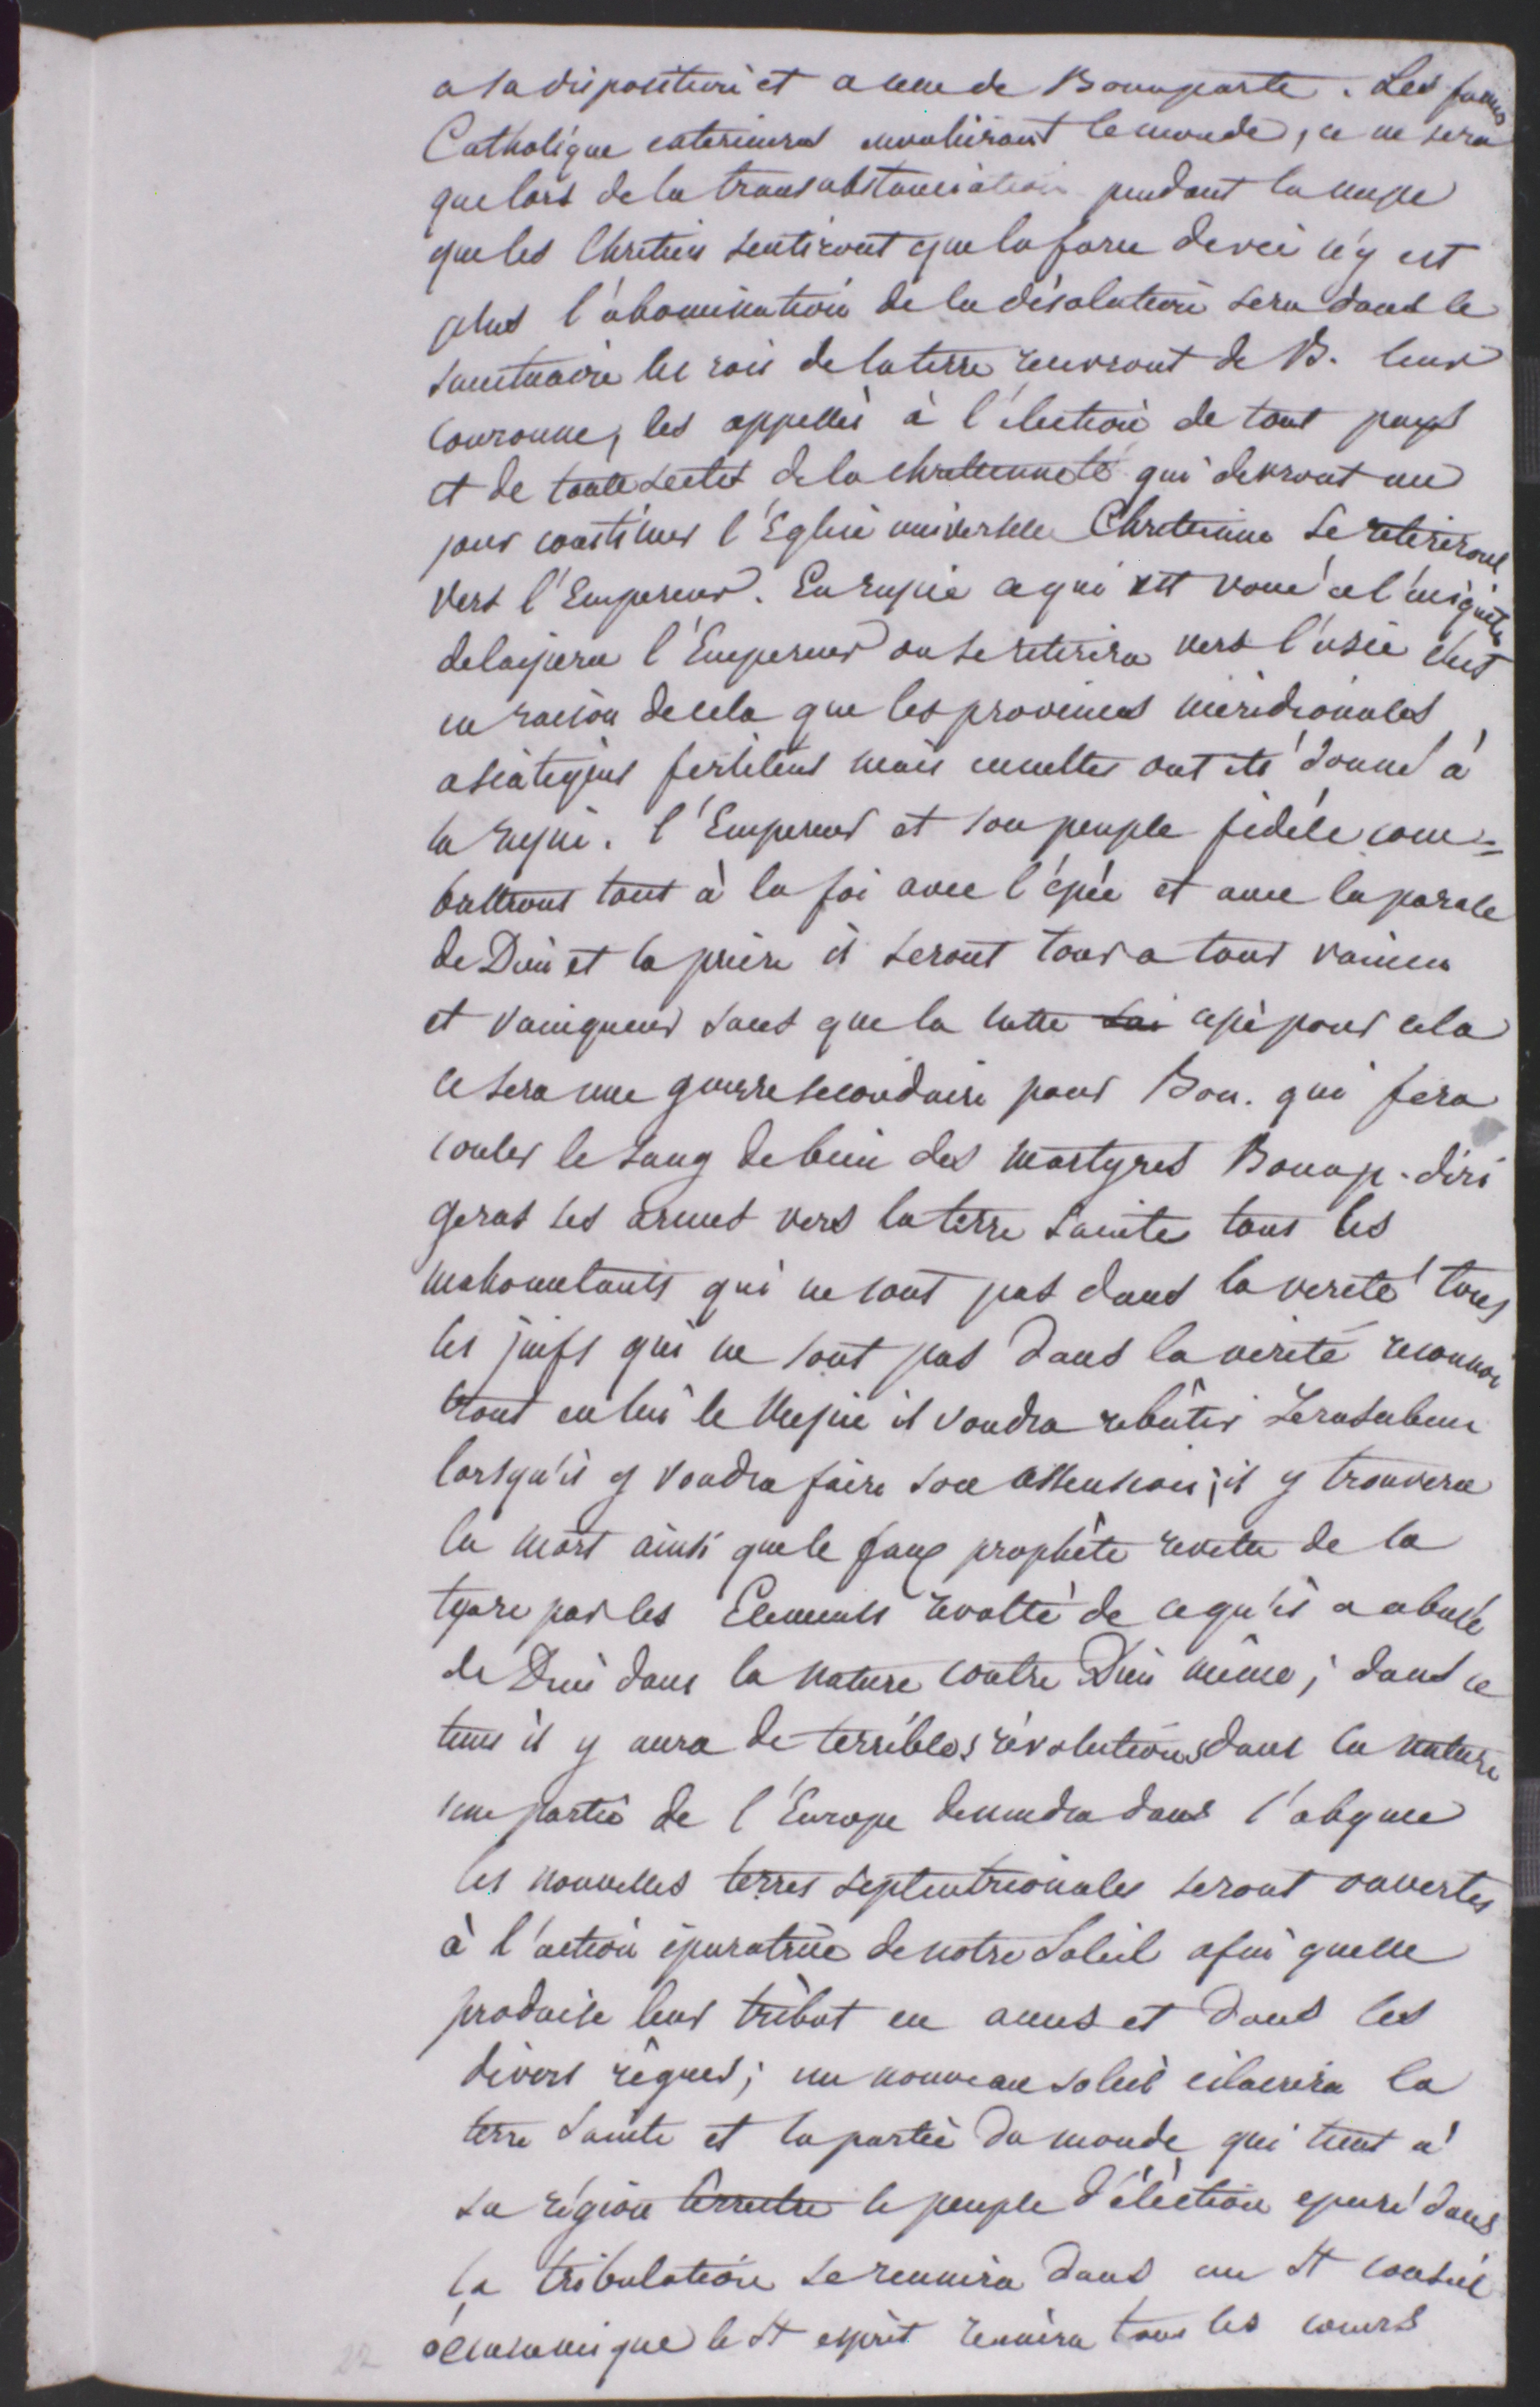 a sa disposition et a celle de Bonaparte. Les formes
Catholique exterieures envahiront le monde, ce ne sera
que lors de la transubstanciation pendant la messe
que les Chretiens sentiront que la force de vie n'y est
plus l'abomination de la désolation sera dans le
sanctuaire les rois de la terre recevront de B. leur
couronne, les appellés à l'élection de tout pays
et de toute sectes de la chretienneté qui devront un
jour constituer l'Eglise universelle Chretienne se retireront
vers l'Empereur. En russie ce qui est voué a l'iniquité
delaissera l'Empereur on se retirera vers l'asie c'est
en raison de cela que les provinces méridionales
asiatiques fertiles mais incultes ont été donné à
la russie. l'Empereur et son peuple fidèle com=
battront tout à la foi avec l'épée et avec la parole
de Dieu et la prière il seront tour a tour vaincu
et vainqueur sans que la lutte soi cesse pour cela
ce sera une guerre secondaire pour Bon. qui fera
couler le sang de bien des martyres Bonap. diri
geras ses armes vers la terre sainte tous les
mahometants qui ne sont pas dans la verité tous
les juifs qui ne sont pas dans la verité reconnoi
tront en lui le Messie il voudra rebâtir Jerusalem
lorsqu'il y voudra faire son assension; il y trouvera
la mort ainsi que le faux prophête revetu de la
tyare par les Elements revolté de ce qu'il a abusé
de Dieu dans la nature contre Dieu même; dans ce
tems il y aura de terribles révolutions dans la nature
une partie de l'Europe descendra dans l'abyme
les nouvelles terres septentrionales seront ouvertes
à l'action épuratrice de notre Soleil afin quelle
produise leur tribut en ames et dans les
divers règnes; un nouveau soleil eclairera la
terre Sainte et la partie du monde qui tient a
sa région terrestre le peuple d'élection epuré dans
la tribulation se reunira dans un St conseil
écumenique le St esprit reunira tous les cœurs
22